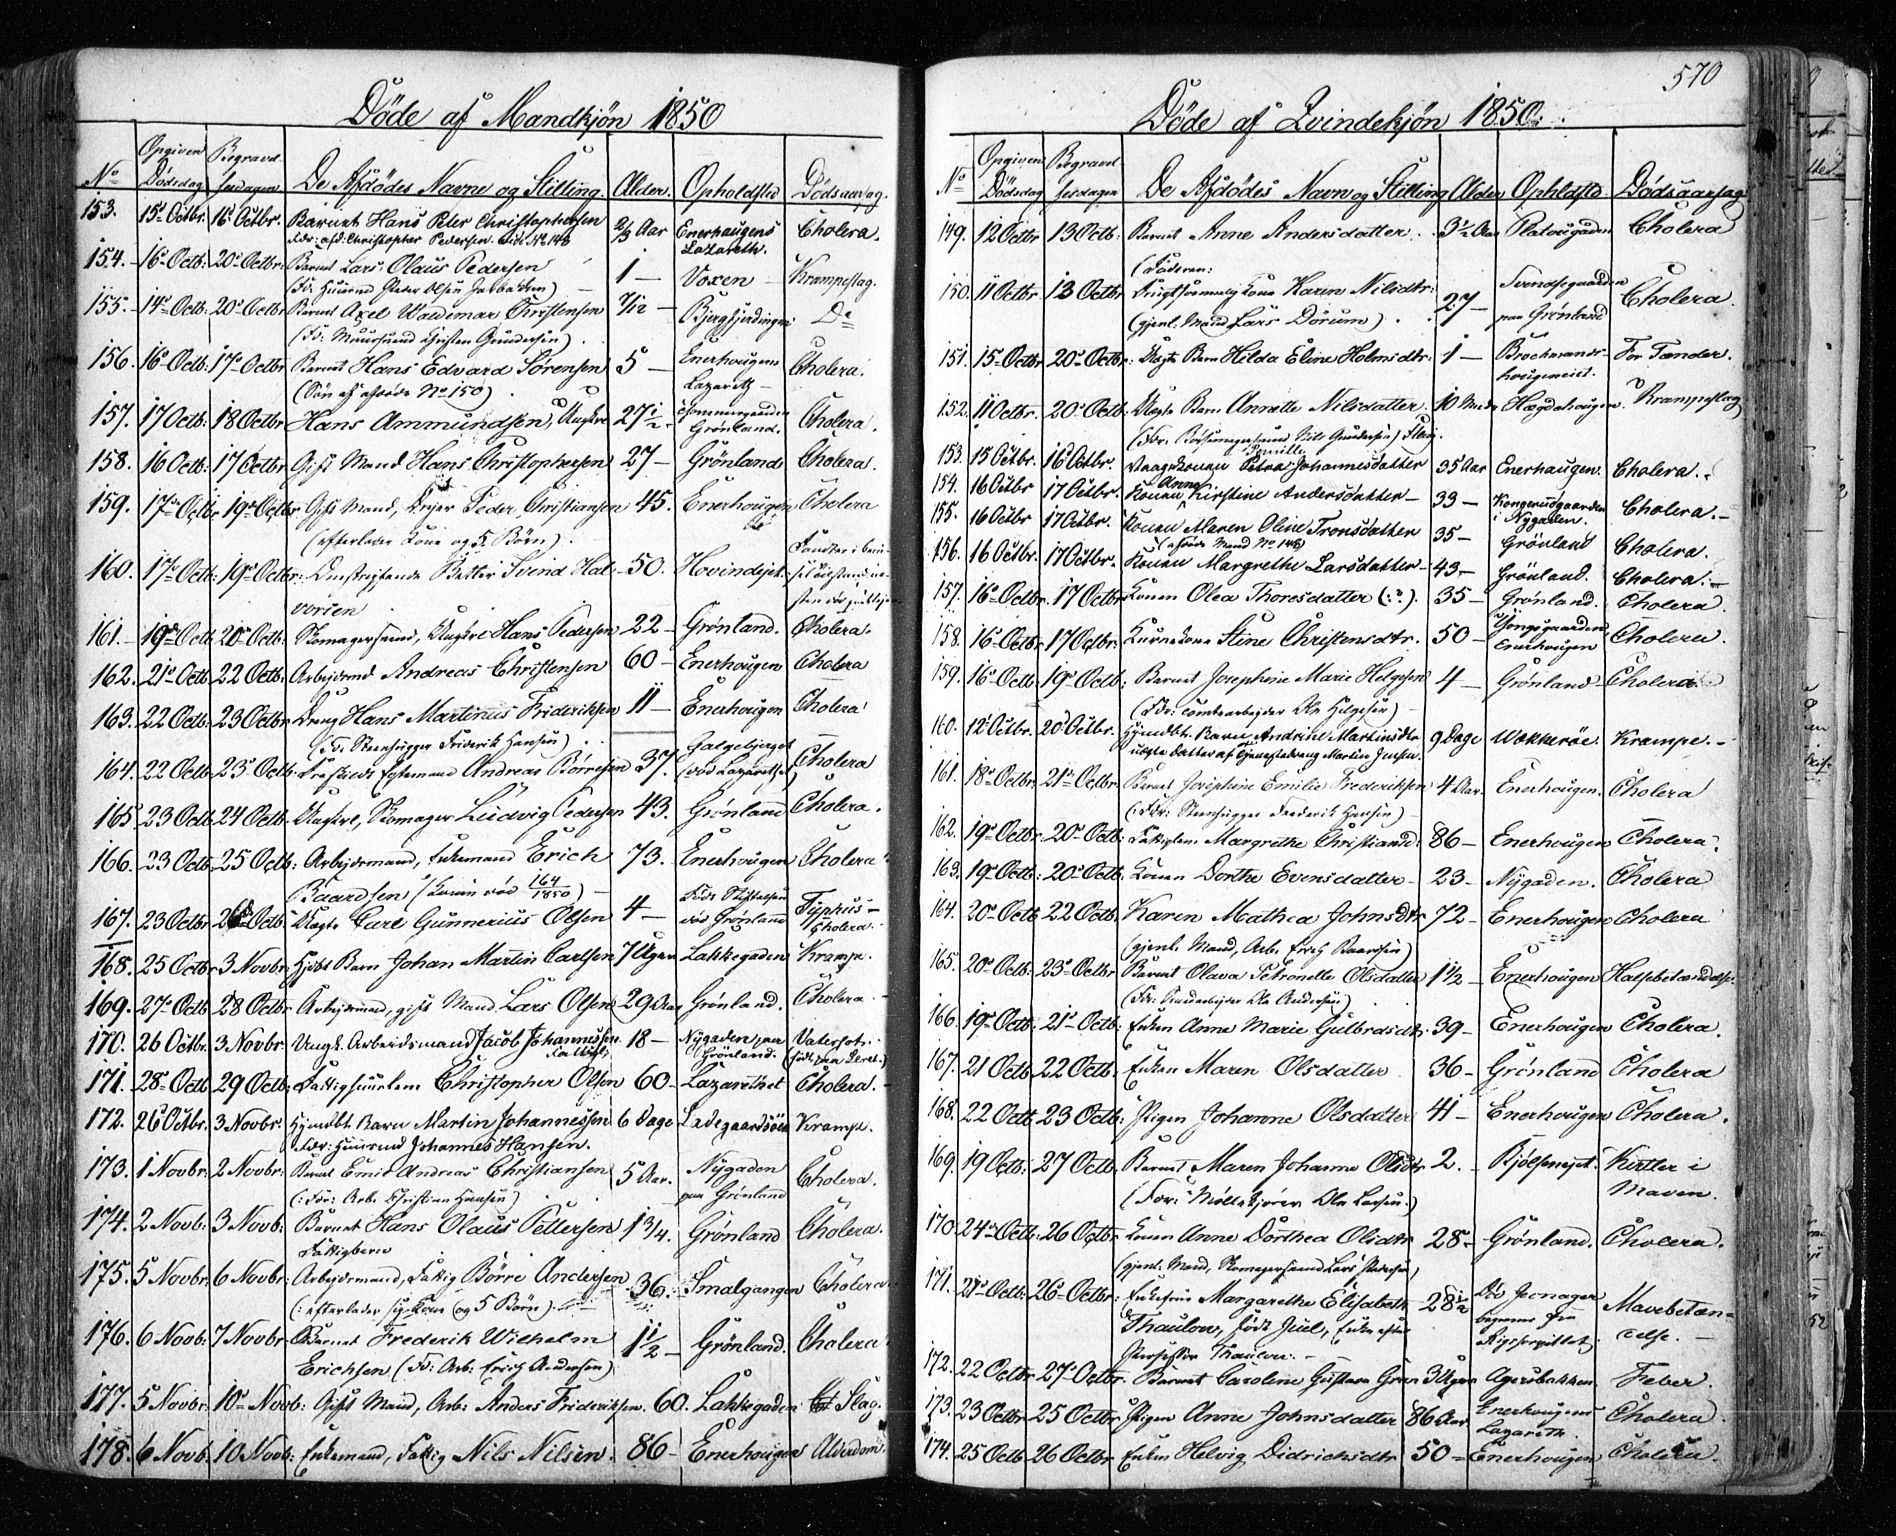 Døde af Mandkjøn 1850
No Opgiven Dødsdag Begravelsesdagen De Afdødes Navne og Stilling. Alder. Opholdsted Dødsaarsag.
153. 15 Octbr. 16 Octbr. Barnet Hans Peter Christophersen 2/3 Aar Enerhaugens Lazareth. Cholera.
Fdr: afd: Christopher Pedersen No 148
154. 16 Octb: 20 Octbr: Barnet Lars Olaus Pedersen 1 — Voxen Krampeslag.
155. 14 Octb: 20 Octbr Barnet Axel Waldemar Christensen 7/12 — Bjergfjerdingen Do
(Fdr. Muursvend Christen Gundersen)
156. 16 Octb: 17 Octbr Barnet Hans Edvard Sörensen 5 — Enerhougens Lazareth — Cholera.
(Søn af afdøde No 150)
157. 17 Octb: 18 Octbr Hans Ammundsen, Ungkarl 27 1/2 — Grönland. Cholera.
158. 16 Octb: 17 Octbr Gift Mand Hans Christophersen 27 — Grönland Cholera.
159. 17 Octbr 19 Octbr Gift Mand, Peder Christiansen 45. Enerhougen Cholera
(efterlader Kone og 5 Børn).
160. 17 Octb: 19 Octbr: Omstreifende Betler Svend Halvorsen 50. Hovindejet
161. 19 Octb 20 Octb: Skomagersvend, Ungkarl Hans Pedersen 22 — Grönland. Cholera.
162. 21 Octb 22 Octb: Arbejdsmd Andreas Christensen 60 — Enerhougen Cholera
163. 22 Octb. 23 Octbr Dreng Hans Martinus Frideriksen 11 — Enerhougen Cholera
(Fdr Steenhugger Friderik Hansen)
164. 22 Octb 23 Octb. Fraskilt Ægtemand Andreas Börresen 37. Galgebjerget (død Lazarethet) Cholera
165 23 Octb. 24 Octb. Ungkarl, Skomager Ludvig Pedersen 43. Grönland Cholera.
166. 23 Octb. 25 Octb: Arbejdsmand, Enkemand Erich 73. Enerhougen Cholera
Baardsen (Konen død 164/1850)
167. 23 Octbr 26 Octb. Uægte Carl Gunnerius Olsen 4 — Stiftelsen ved Grønland Typhus—Cholera.
168. 25 Octbr 3 Novbr. Hjdbt Barn Johan Martin Carlsen 7 Uger Lakkegaden Krampe.
169. 27 Octb: 28 Octbr Arbejdsmd, gift Mand Lars Olsen 29 Aar Grönland. Cholera.
170. 26 Octbr. 3 Novbr. Ungk. Arbeidsmand Jacob Johannessen 18 — Nygaden paa Grönland. Vatersot.
171. 28 Octb 29 Octb. Fattiglem Christopher Olsen 60 — Lazarethet Cholera.
172. 26 Octbr. 3 Novbr. Hjemdbt Barn Martin Johannessen 6 Dage Ladegaardsöen Krampe.
Fdr: Huusmd Johannes Hansen.
173. 1 Novbr: 2 Novbr: Barnet Emil Andreas Christiansen 5 Aar. Nygaden paa Grönland Cholera.
(: Fdr: Arb. Christian Hansen)
174. 2 Novb: 3 Novb: Barnet Hans Olaus Pettersen 1 3/4. Grönland Cholera.
Fattigbarn
175. 5 Novbr. 6 Novbr: Arbejdsmand, Fattig Börre Andersen 36. Smalgangen Cholera
(: efterlader syg Kone og 5 Børn)
176. 6 Novb: 7 Novbr Barnet Frederik Wilhelm 1 1/2 — Grönland. Cholera
Erichsen (Fdr: Arb. Erich Andersen)
177. 5 Novbr. 10 Novb: Gift Mand, Arb: Anders Frideriksen. 60. Lakkegaden Slag.
178. 6 Novb. 10 Novb: Enkemand, Fattig Nils Nilsen. 86 — Enerhougen Alderdom

570
Døde af Qvindekjön 1850.
No Opgiven Dødsdag Begravelsesdagen De Afdødes Navn og Stilling Alder Opholdsted Dødsaarsag
149. 12 Octbr 13 Octb: Barnet Anne Andersdatter 3 1/2 Aar Platougaden Cholera
150. 11 Octbr. 13 Octbr Karen Nilsdtr: 27 — Svendsegaarden paa Grönland Cholera.
(gjenl. Mand Lars Dørum)
151. 15 Octbr 20 Octbr: Uægte Barn Hilda Eline Holmsdtr: 1 — For Tænder.
152. 11 Octbr. 20 Octb. Uægte Barn Annette Nilsdatter. 10 Mndr Hægdehougen. Krampeslag
153. 15 Octbr. 16 Octbr. Petra Pernille Johannesdatter 35 Aar Enerhaugen. Cholera.
154. 16 Octbr 17 Octbr. Konen Anne Kirstine Andersdatter — 33 — Kongerudgaarden i Nygaden. Cholera.—
155. 16 Octbr 17 Octbr. Konen Maren Oline Tronsdatter 35 — Grönland Cholera.
(afdøde Mand No 148)
156. 16 Octbr. 17 Octbr. Konen Margrethe Larsdatter — 43 — Grønland. Cholera.—
157. 16 Octbr. 17 Octbr Konen Olea Thoresdatter (:?). 35 — Grønland. Cholera.
158. 16 Octbr 17 Octbr: Stine Christensdtr. 50 — Enerhougen Cholera.
159. 16 Octb. 19 Octb: Barnet Josephine Marie Helgesen 4 — Grønland — Cholera
(Fdr: Ole Helgesen)
160. 12 Octbr. 20 Octbr. Hjemdbt. Barn Andrine Martinsdtr 9 Dage Wækkerøe. Krampe.—
uægte Datter af Tjenestedreng Martin Jensen.
161. 18 Octbr. 21 Octbr. Barnet Josephine Emilie Frederiksen 4 Aar. Enerhougen. Cholera
(: Fdr: Steenhugger Frederik Hansen)
162. 19 Octbr. 20 Octb. Fattiglem Margrethe Christiansd: 86 — Enerhougen Cholera.
163. 19 Octbr: 20 Octbr. Konen Dorthe Evensdatter — 23 — Nÿgaden. Cholera
164. 20 Octb. 22 Octb. Karen Mathea Johnsdtr 72 — Enerhougen Cholera
(gjenl. Mand, Arb. Erich Baardsen)
165. 20 Octb. 23 Octbr Barnet Olava Petronelle Olsdatter 1 1/2 — Enerhougen Halsbetændelse.
(Fdr: Ole Andersen)
166. 19 Octb: 21 Octb. Enken Anne Marie Gulbrdsdtr. 39 — Enerhougen Cholera.
167. 21 Octb. 22 Octb. Enken Maren Olsdatter 36 — Grönland Cholera
168. 22 Octb 23 Octb: Pigen Johanne Olsdatter 41 — Enerhougen Cholera.
169. 19 Octb: 27 Octb: Barnet Maren Johanne Olsdtr 2. — Bjølsenejet. Kirtler i Maven.
(Fdr: Møllekjører Ole Larsen.)
170. 24 Octb: 26 Octbr Konen Anne Dorthea Olsdtr 28 — Grönland. Cholera.
(gjenl. Mand, Skomagersvend Lars Pedersen)
171. 21 Octb: 26 Octbr: Enkefrue Margarethe Elisabeth 28 1/2 Mavebetændelse.
Thaulow, født Juel, Enke efter
Professor Thaulow.—
172. 22 Octbr. 27 Octbr. Barnet Caroline Gustava 3 Uger Agersbakken Feber.
173. 23 Octbr 25 Octbr Pigen Anne Johnsdatter 86 Aar Enerhougens Lazareth. Cholera.
174. 25 Octb 26 Octbr Enken Helvig Didrichsdtr 50 — Enerhougen Cholera.